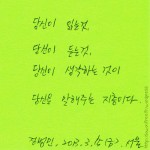 당신이 읽는것,
당신이 듣는것,
당신이 생각하는 것이
당신을 말해주는 지름이다.
2013. 3.
서울